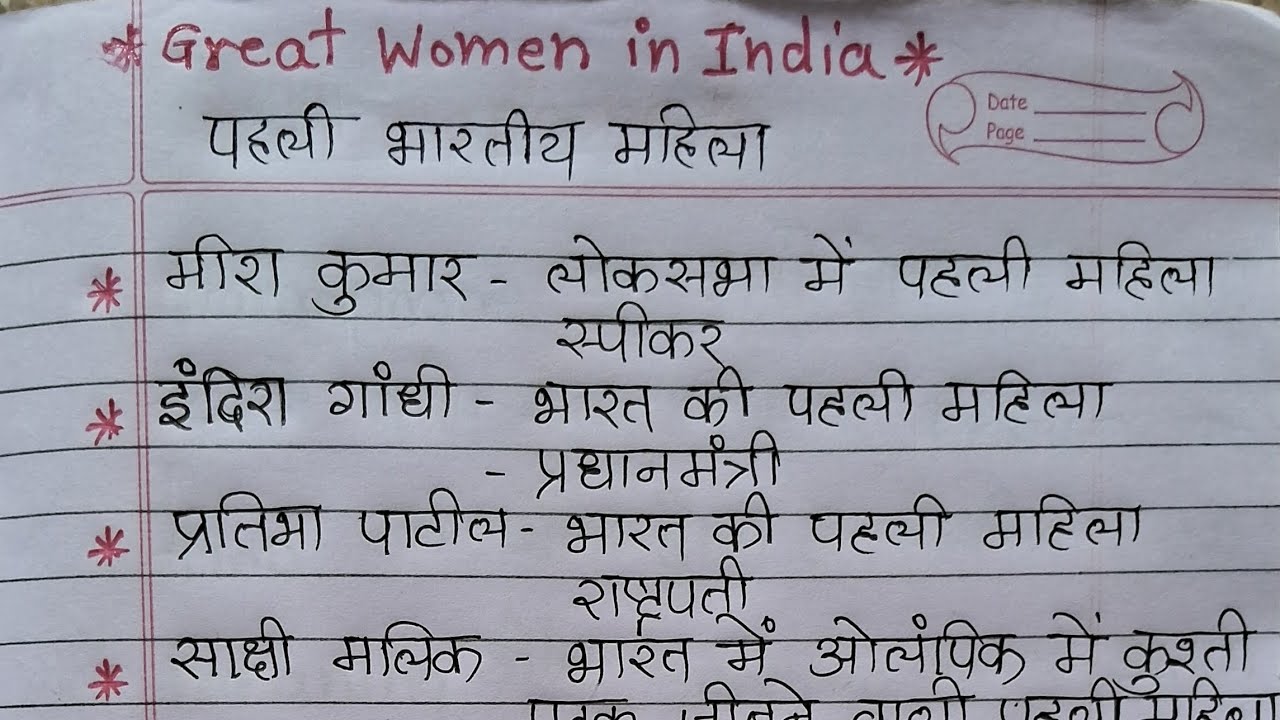 * Great Women in India *
Date
Page
पहली भारतीय महिला
* मीरा कुमार - लोकसभा में पहली महिला
स्पीकर
* इंदिरा गांधी - भारत की पहली महिला
- प्रधानमंत्री
* प्रतिभा पाटील - भारत की पहली महिला
राष्ट्रपती
* साक्षी मलिक - भारत में ओलंपिक में कुश्ती
पदक जीतने वाली पहली महिला